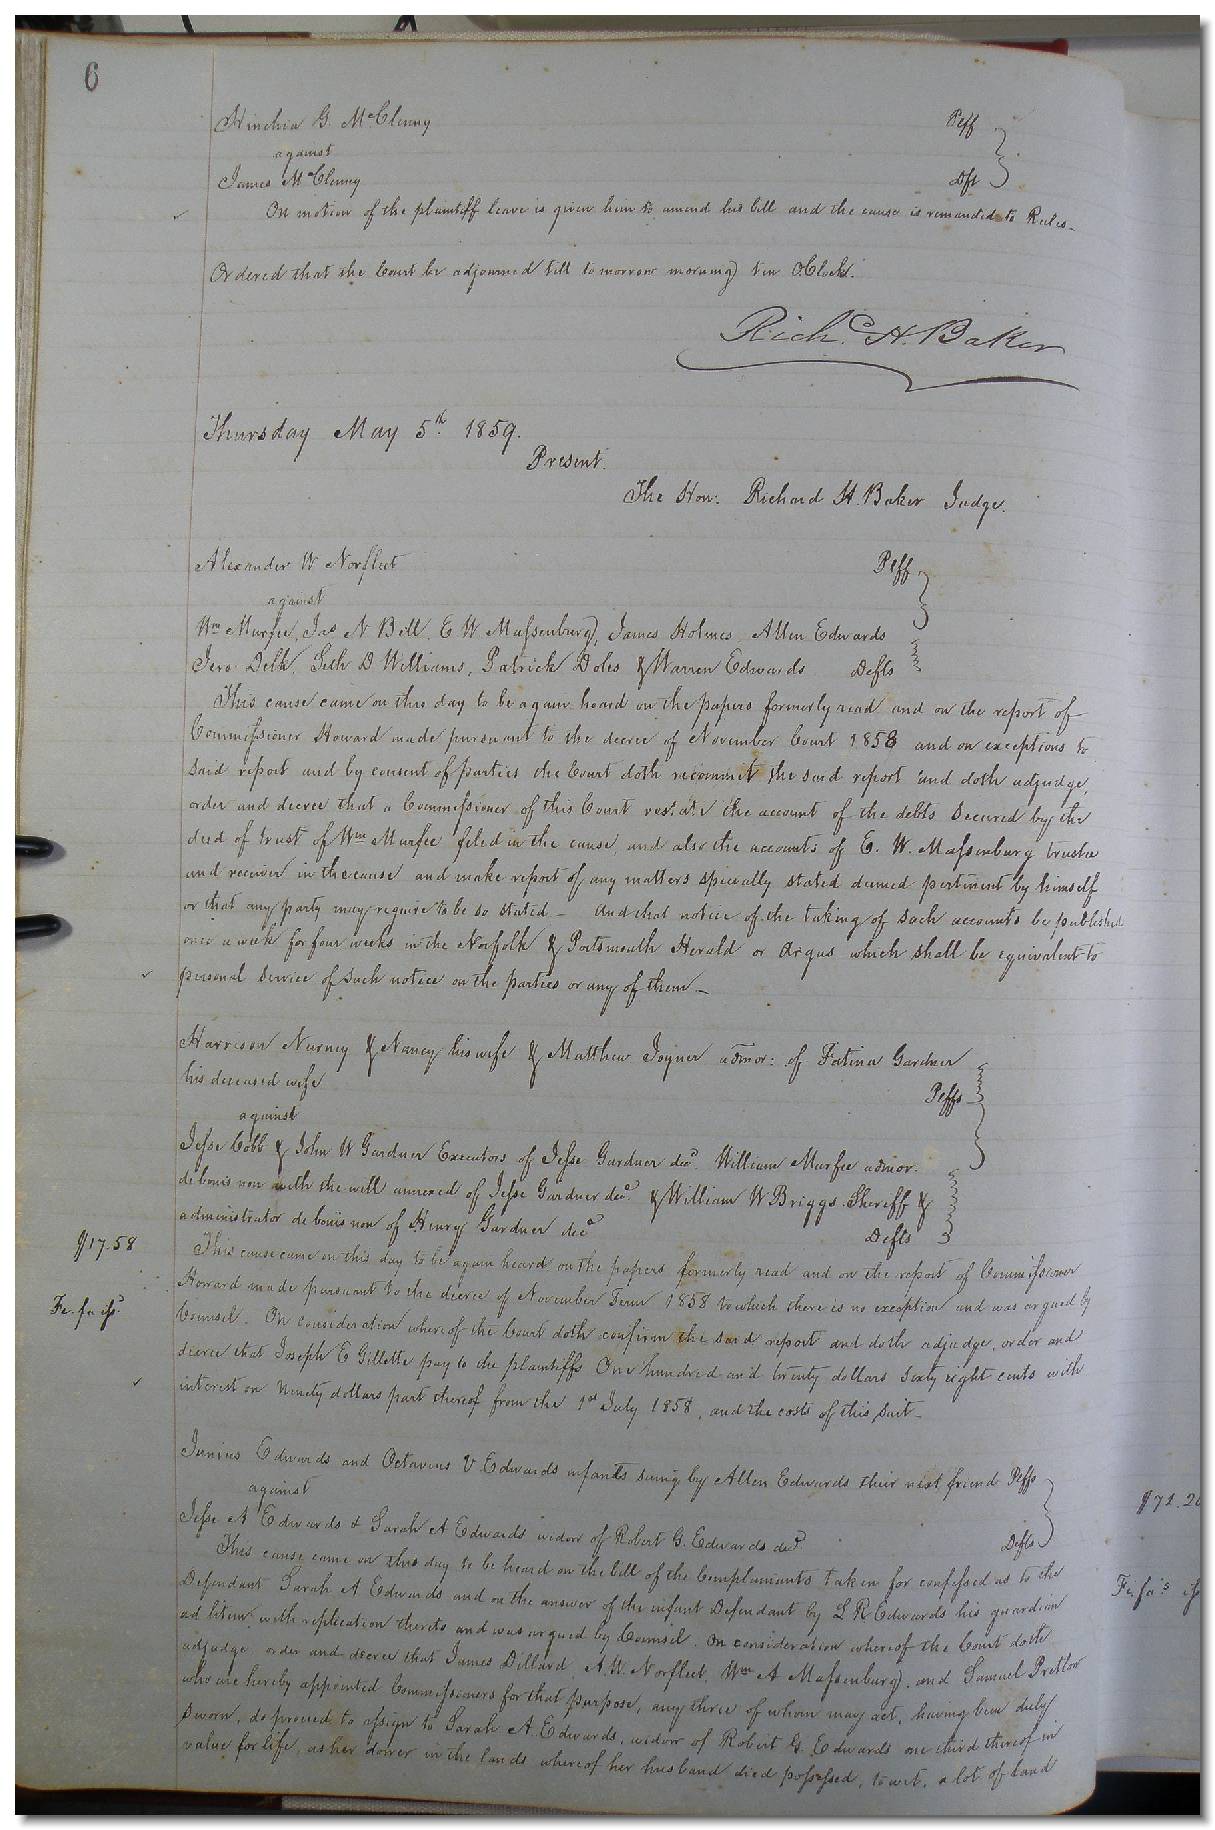 6
Hinchia G. McClenny Plff
against
James McClenny Dft
On motion of the plaintiff leave is given him to amend his bill and the cause is remanded to Rules.
Ordered that the Court be adjourned till tomorrow morning ten O.Clock.
Richd. H. Baker
Thursday May 5th 1859.
Present.
The Hon: Richard H. Baker Judge.
Alexander W Norfleet Plff
against
Wm Murfee, Jas N Bell, E W Massenburg, James Holmes, Allen Edwards
Jero Delk, Seth D Williams, Patrick Doles & Warren Edwards Defts
This cause came on this day to be again heard on the papers formerly read and on the report of
Commissioner Howard made pursuant to the decree of November Court 1858 and on exceptions to
said report and by consent of parties the Court doth recommit the said report and doth adjudge,
order and decree that a Commissioner of this Court restate the account of the debts secured by the
deed of trust of Wm Murfee filed in the cause and also the accounts of E. W. Massenburg trustee
and receiver in the cause and make report of any matters specially stated deemed pertinent by himself
or that any party may require to be so stated – And that notice of the taking of such accounts be published
once a week for four weeks in the Norfolk & Portsmouth Herald or Argus which shall be equivalent to
personal service of such notice on the parties or any of them –
Harrison Nurney & Nancy his wife & Matthew Joyner admor: of Fatina Gardner
his deceased wife Plffs
against
Jesse Cobb & John W Gardner Executors of Jesse Gardner decd. William Murfee admor.
de bonis non with the will annexed of Jesse Gardner decd. & William W Briggs Sheriff &
administrator de bonis non of Henry Gardner decd Defts
$17.58
This cause came on this day to be again heard on the papers formerly read and on the report of Commissioner
Howard made pursuant to the decree of November Term 1858 to which there is no exception and was argued by
Fi. fa issd.
Counsel. On consideration whereof the Court doth confirm the said report and doth adjudge, order and
decree that Joseph E Gillette pay to the plaintiffs One hundred and twenty dollars sixty eight cents with
interest on Ninety dollars part thereof from the 1st July 1858, and the costs of this suit –
Junius Edwards and Octavius V Edwards infants suing by Allen Edwards their next friend Plffs
against
Jesse A Edwards & Sarah A Edwards widow of Robert G. Edwards decd Defts
This cause came on this day to be heard on the bill of the Complainants taken for confessed as to the
Defendant Sarah A Edwards and on the answer of the infant Defendant by L R Edwards his guardian
ad litem with replication thereto and was argued by Counsel. On consideration whereof the Court doth
adjudge order and decree that James Dillard, A. W. Norfleet, Wm A Massenburg, and Samuel Pretlow
who are hereby appointed Commissioners for that purpose, any three of whom may act, having been duly
sworn, do proceed to assign to Sarah A. Edwards, widow of Robert G. Edwards one third thereof in
value for life, as her dower in the lands whereof her husband died possessed, to wit, a lot of land
Fi. fa's